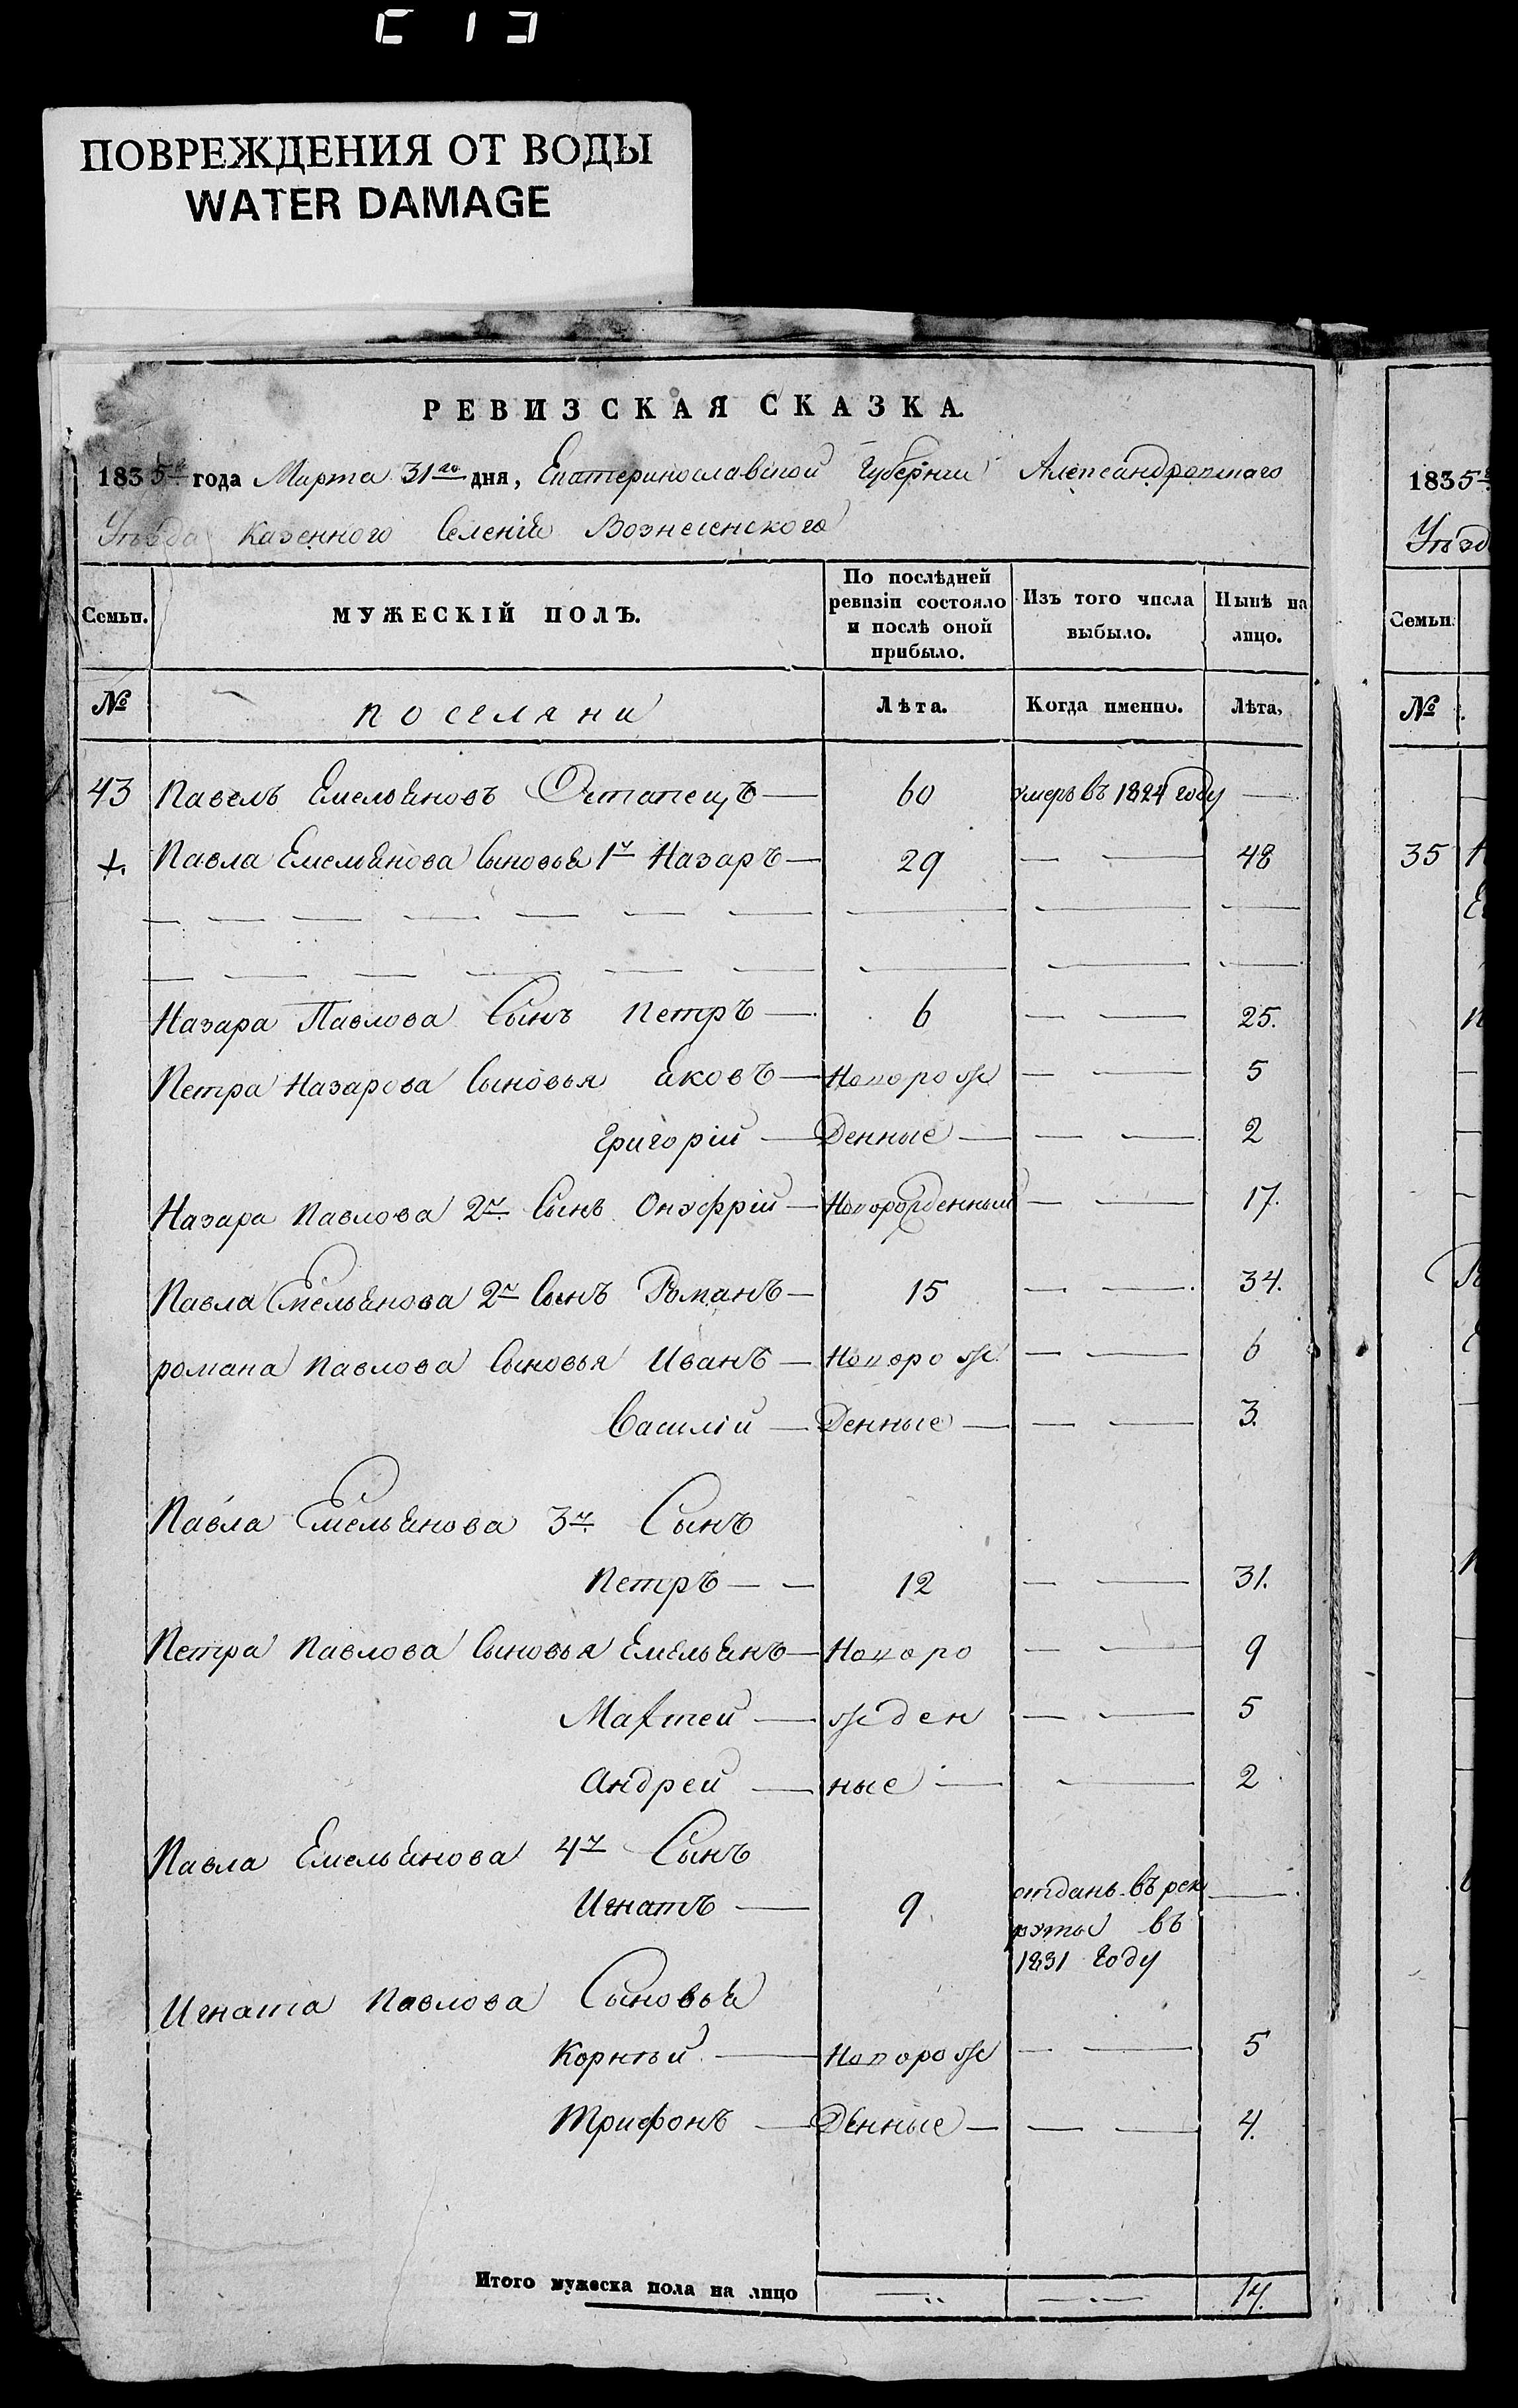 ПОВРЕЖДЕНИЯ ОТ ВОДЫ
WATER DAMAGE
РЕВИЗСКАЯ СКАЗКА.
1835го года Марта 31го дня, Екатеринославской Губернии Александровскаго
Уѣзда Казенного Селенія Вознесенского
Семьи. МУЖЕСКІЙ ПОЛЪ. По послѣдней ревизіи состояло и послѣ оной прибыло. Изъ того числа выбыло. Нынѣ на лицо.
№ поселяни Лѣта. Когда именно. Лѣта,
43 Павелъ Емельяновъ Остапецъ — 60 умеръ въ 1824 году —
Павла Емельянова Сыновья 1й Назаръ — 29 — — 48
Назара Павлова Сынъ Петръ — 6 — — 25.
Петра Назарова Сыновья Яковъ — Новорож — — 5
Григорій — Денные — — — 2
Назара Павлова 2й Сынъ Онуфрій — Новорожденный — — 17.
Павла Емельянова 2й Сынъ Романъ — 15 — — 34.
романа Павлова Сыновья Иванъ — Новорож — — 6
Василій — Денные — — — 3.
Павла Емельянова 3й Сынъ
Петръ — — 12 — — 31.
Петра Павлова Сыновья Емельянъ — Новоро — — 9
Матфей — жден — — 5
Андрей — ные — — 2
Павла Емельянова 4й Сынъ
Игнатъ — 9. отданъ въ рек —
руты въ
1831 году
Игната Павлова Сыновья
Корнѣй — Новорож — — 5
Трифонъ — Денные — — — 4.
Итого мужеска пола на лицо — — 14.
1835
Уѣзд
Семьи.
№
35